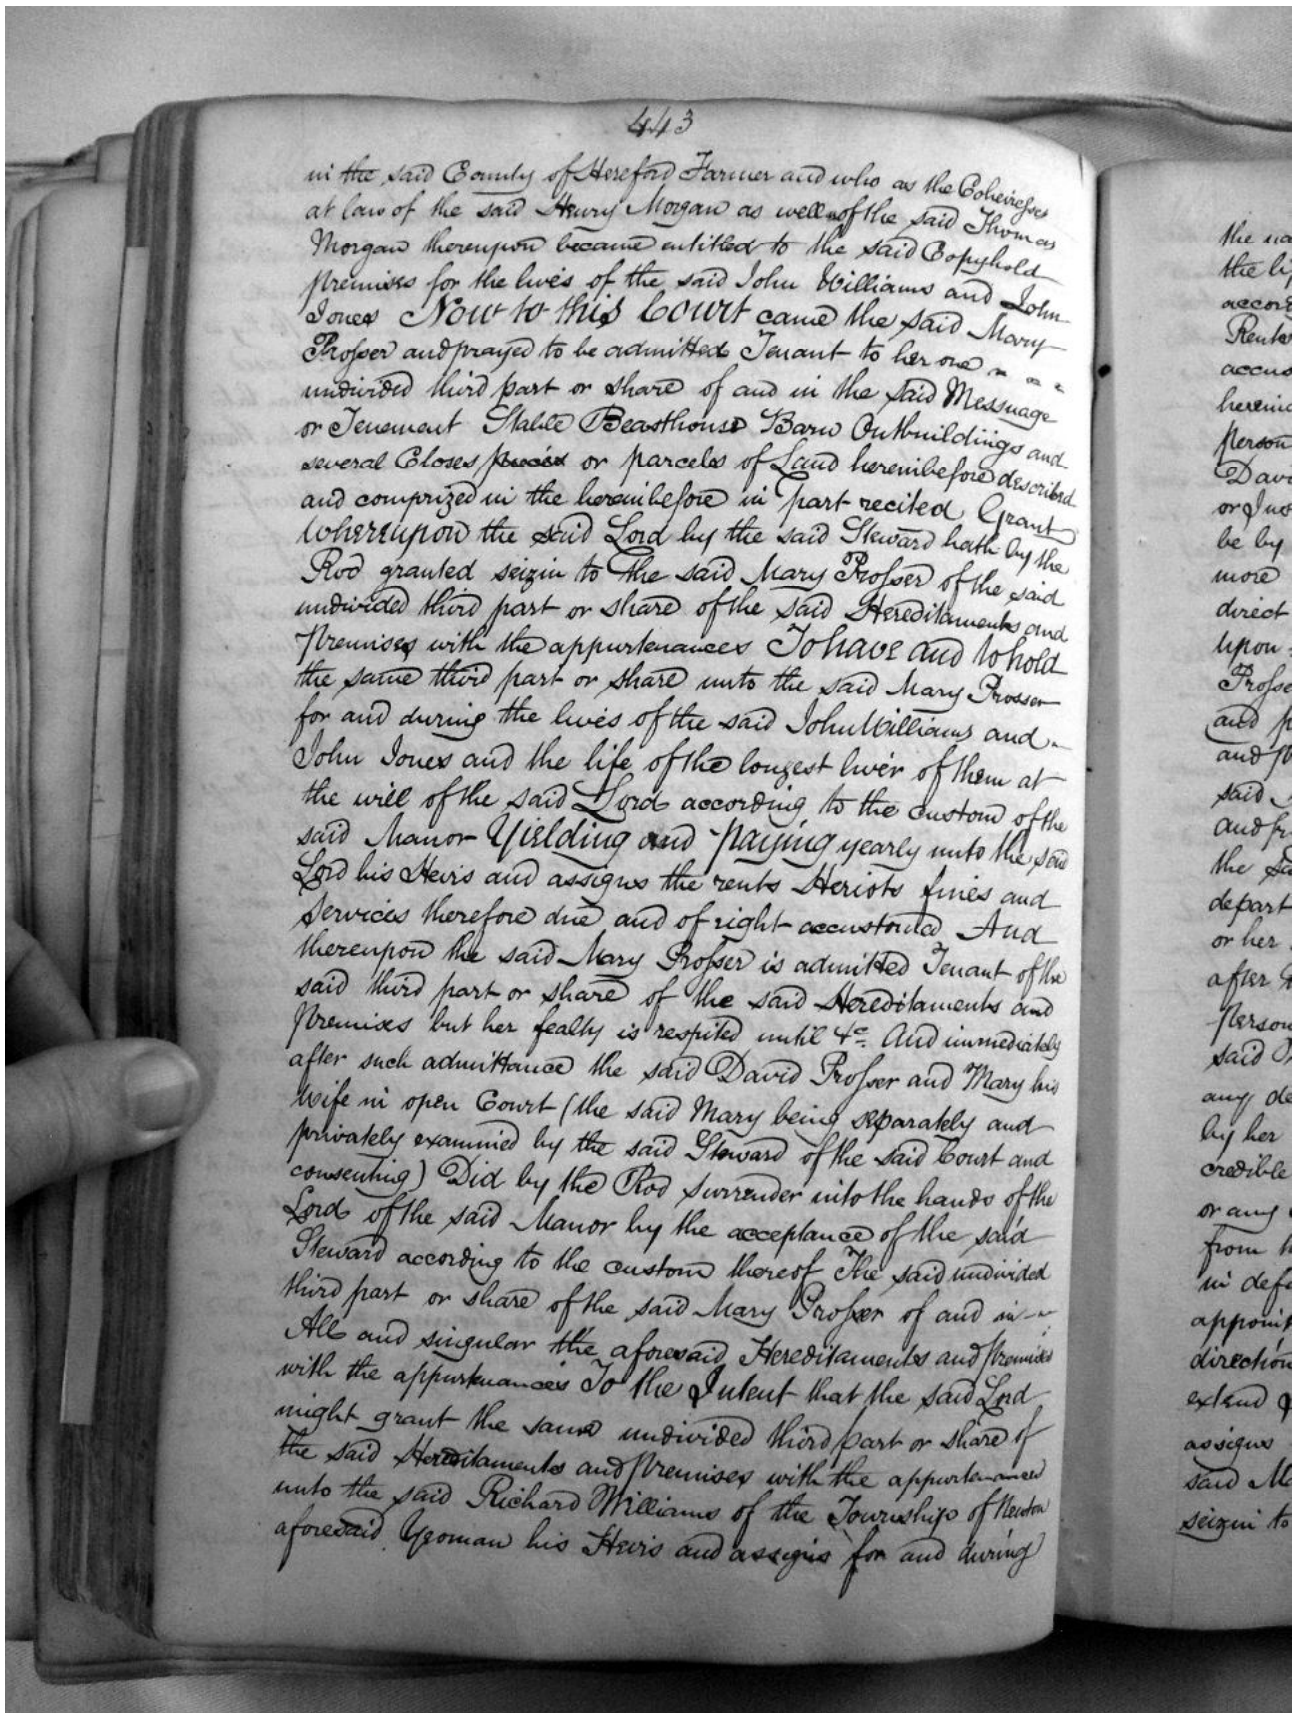 443
in the said County of Hereford Farmer and who as the Coheiresses
at law of the said Henry Morgan as well as of the said Thomas
Morgan thereupon became entitled to the said Copyhold
premises for the lives of the said John Williams and John
Jones Now to this Court came the said Mary
Prosser and prayed to be admitted Tenant to her one
undivided third part or share of and in the said Messuage
or Tenement Stable Beasthouse Barn Outbuildings and
several Closes pieces or parcels of Land hereinbefore described
and comprized in the hereinbefore in part recited Grant
Whereupon the said Lord by the said Steward hath by the
Rod granted seizin to the said Mary Prosser of the said
undivided third part or share of the said Hereditaments and
Premises with the appurtenances To have and to hold
the same third part or share unto the said Mary Prosser
for and during the lives of the said John Williams and
John Jones and the life of the longest liver of them at
the will of the said Lord according to the custom of the
said Manor Yielding and paying yearly unto the said
Lord his Heirs and assigns the rents Heriots fines and
Services therefore due and of right accustomed And
thereupon the said Mary Prosser is admitted Tenant of the
said third part or share of the said Hereditaments and
Premises but her fealty is respited until &c. And immediately
after such admittance the said David Prosser and Mary his
Wife in open Court (the said Mary being separately and
privately examined by the said Steward of the said Court and
consenting) Did by the Rod surrender into the hands of the
Lord of the said Manor by the acceptance of the said
Steward according to the custom thereof The said undivided
third part or share of the said Mary Prosser of and in
All and singular the aforesaid Hereditaments and Premises
with the appurtenances To the Intent that the said Lord
might grant the same undivided third part or share of
the said Hereditaments and Premises with the appurtenances
unto the said Richard Williams of the Township of Newton
aforesaid Yeoman his Heirs and assigns for and during
the
the
Rents
person
or
be by
more
direct
upon
and
said
the
depart
or her
after
Person
said
any
by her
credible
or any
from
in
direction
extend
assigns
said
seizin to